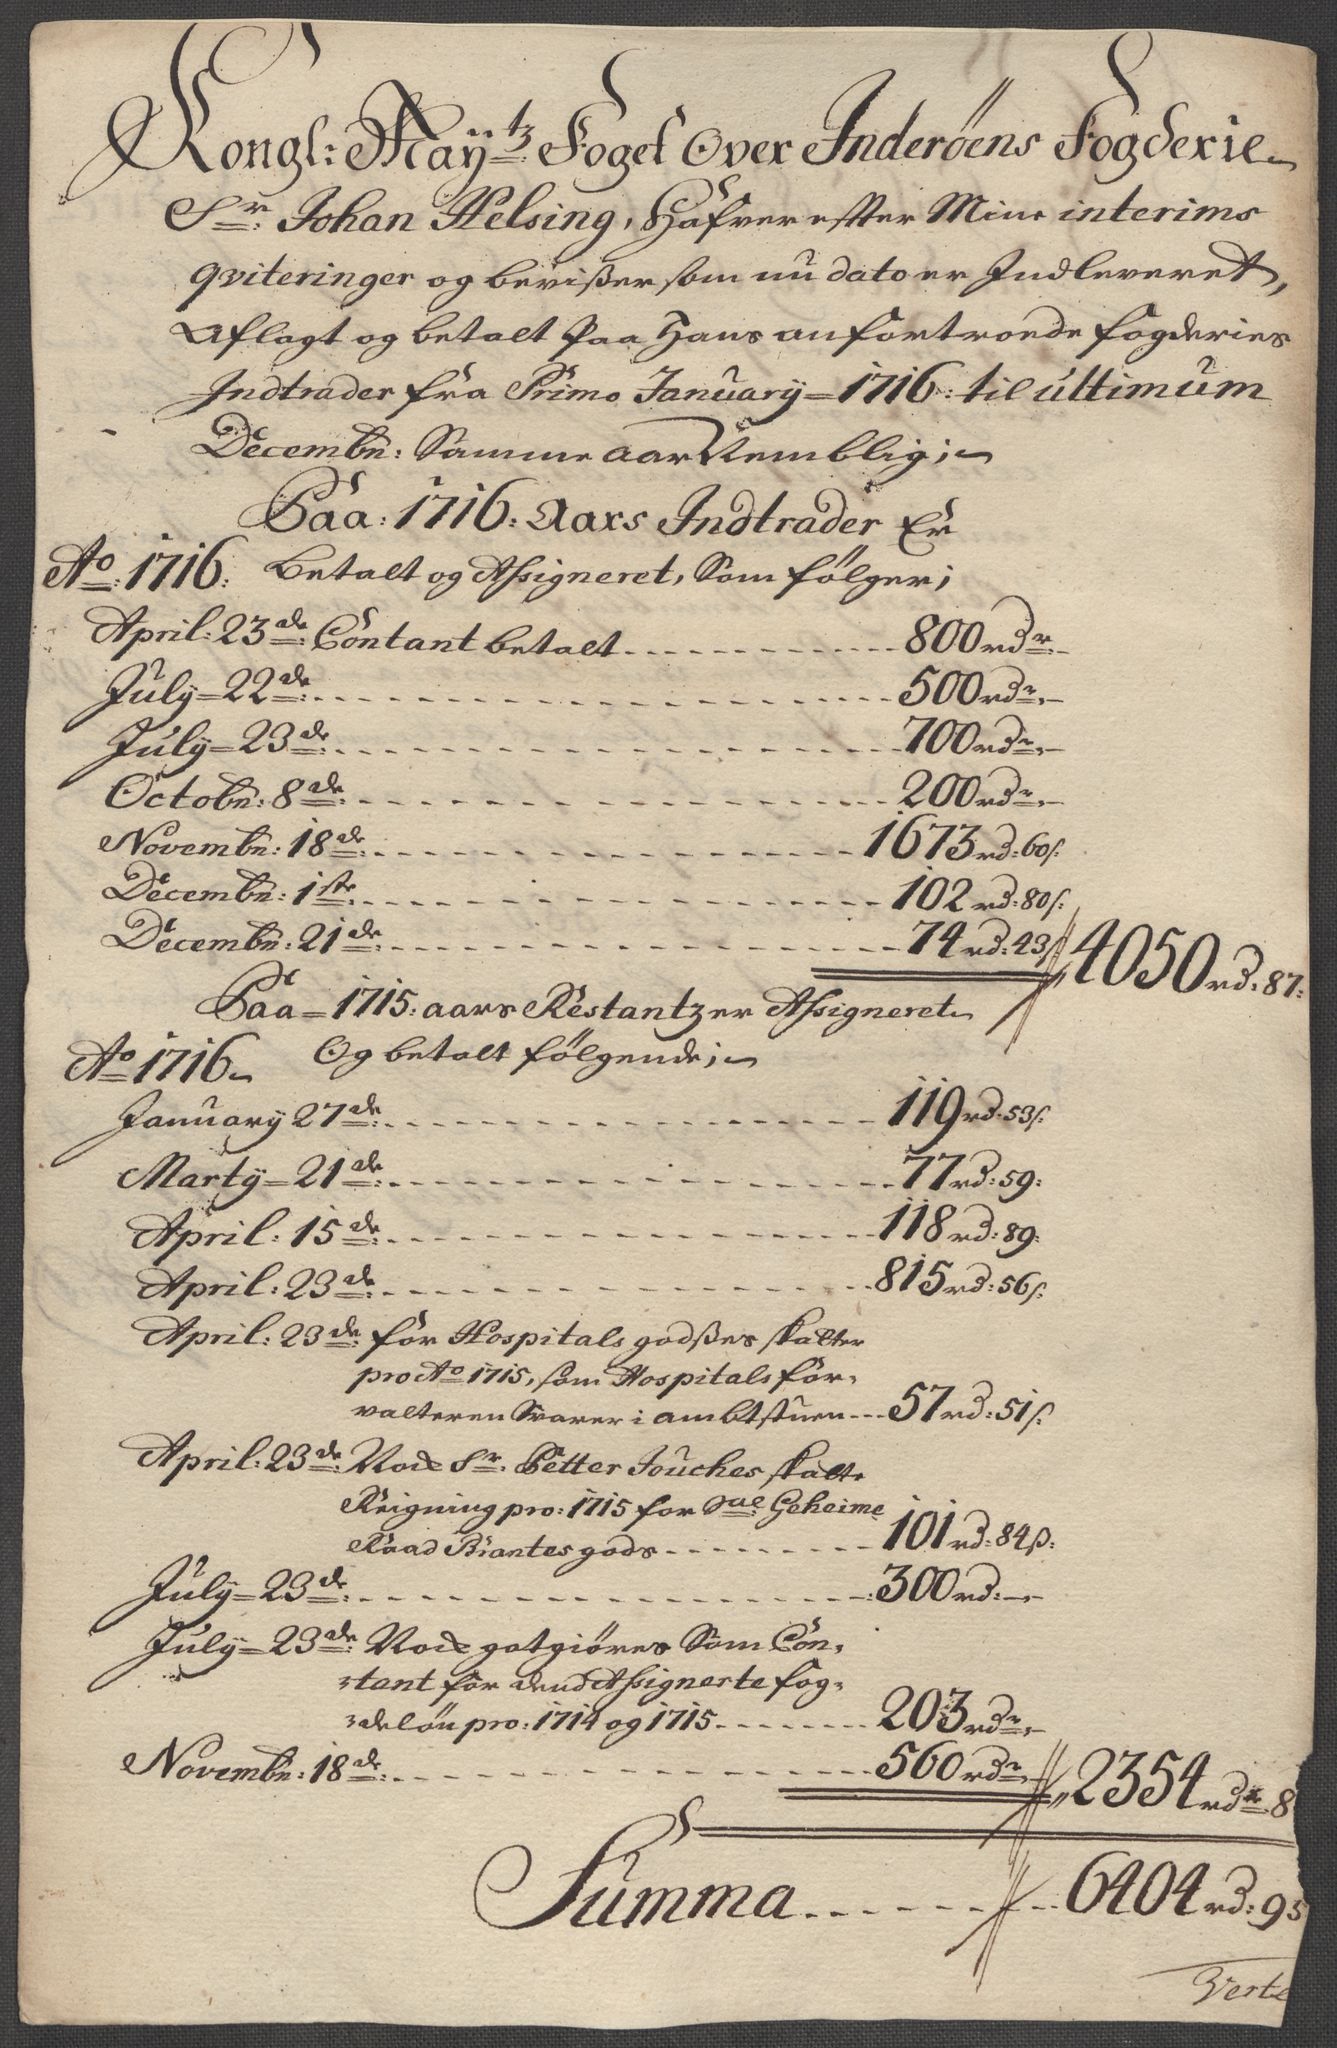 Kongl: Maÿtz Foget Over Inderöens Fogderie
Sr. Johan Helsing, Hafver effter Mine interims
qviteringer og bevißer som nu dato er Indleveret,
Aflagt og betalt Paa Hans anfortroede fogderies
Indtrader fra Primo Januarÿ 1716: til ultimum
Decembr: Samme aar Nemblig;
Paa: 1716: Aars Indtrader Er
Ao: 1716: Betalt og Assigneret, Som følger;
April: 23de: Contant betalt 800 rdr.
Julÿ 22de: 500 rdr.
Julÿ 23de: 700 rdr.
Octobr: 8de: 200 rdr.
Novembr: 18de: 1673 rd: 60 s.
Decembr: 1ste: 102 rd: 80 s:
Decembr: 21de: 74 rd: 43 s 4050 rd: 87:
Paa 1715: aars Restantzer Assigneret
Ao 1716 Og betalt følgende;
Januarÿ 27de: 119 rd. 53 s.
Martÿ 21de: 77 rd: 59:
April: 15de: 118 rd: 89:
April: 23de: 815 rd: 56 s:
April: 23de: for Hospitals godßes skatter
pro Ao 1715, som Hospitals for-
valteren Svarer i ambtstuen 57 rd: 51 s.
April: 23de: Ved Sr. Petter Jouches skatte
Reigning pro: 1715 for Sal Geheime
Raad Brantes gods 101 rd: 84 ß:
Julÿ 23de: 300 rd:
Julÿ 23de: Ved gotgiöres Som Con-
tant for dend Assignerte fog-
delön pro: 1714 og 1715 203 rdr.
Novembr: 18de: 560 rdr 2354 rdr 8
Summa 6404 rd: 95
Verte